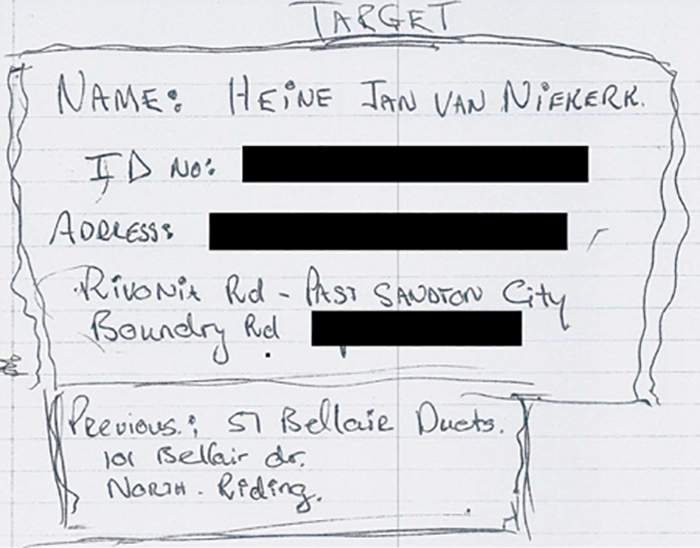 TARGET
NAME: HEINE JAN VAN NIEKERK.
ID NO:
ADDRESS:
RIVONIA Rd - PAST SANDTON City
Boundry Rd
Previous.: 51 Bellair Ducts.
101 Bellair dr.
NORTH - Riding.